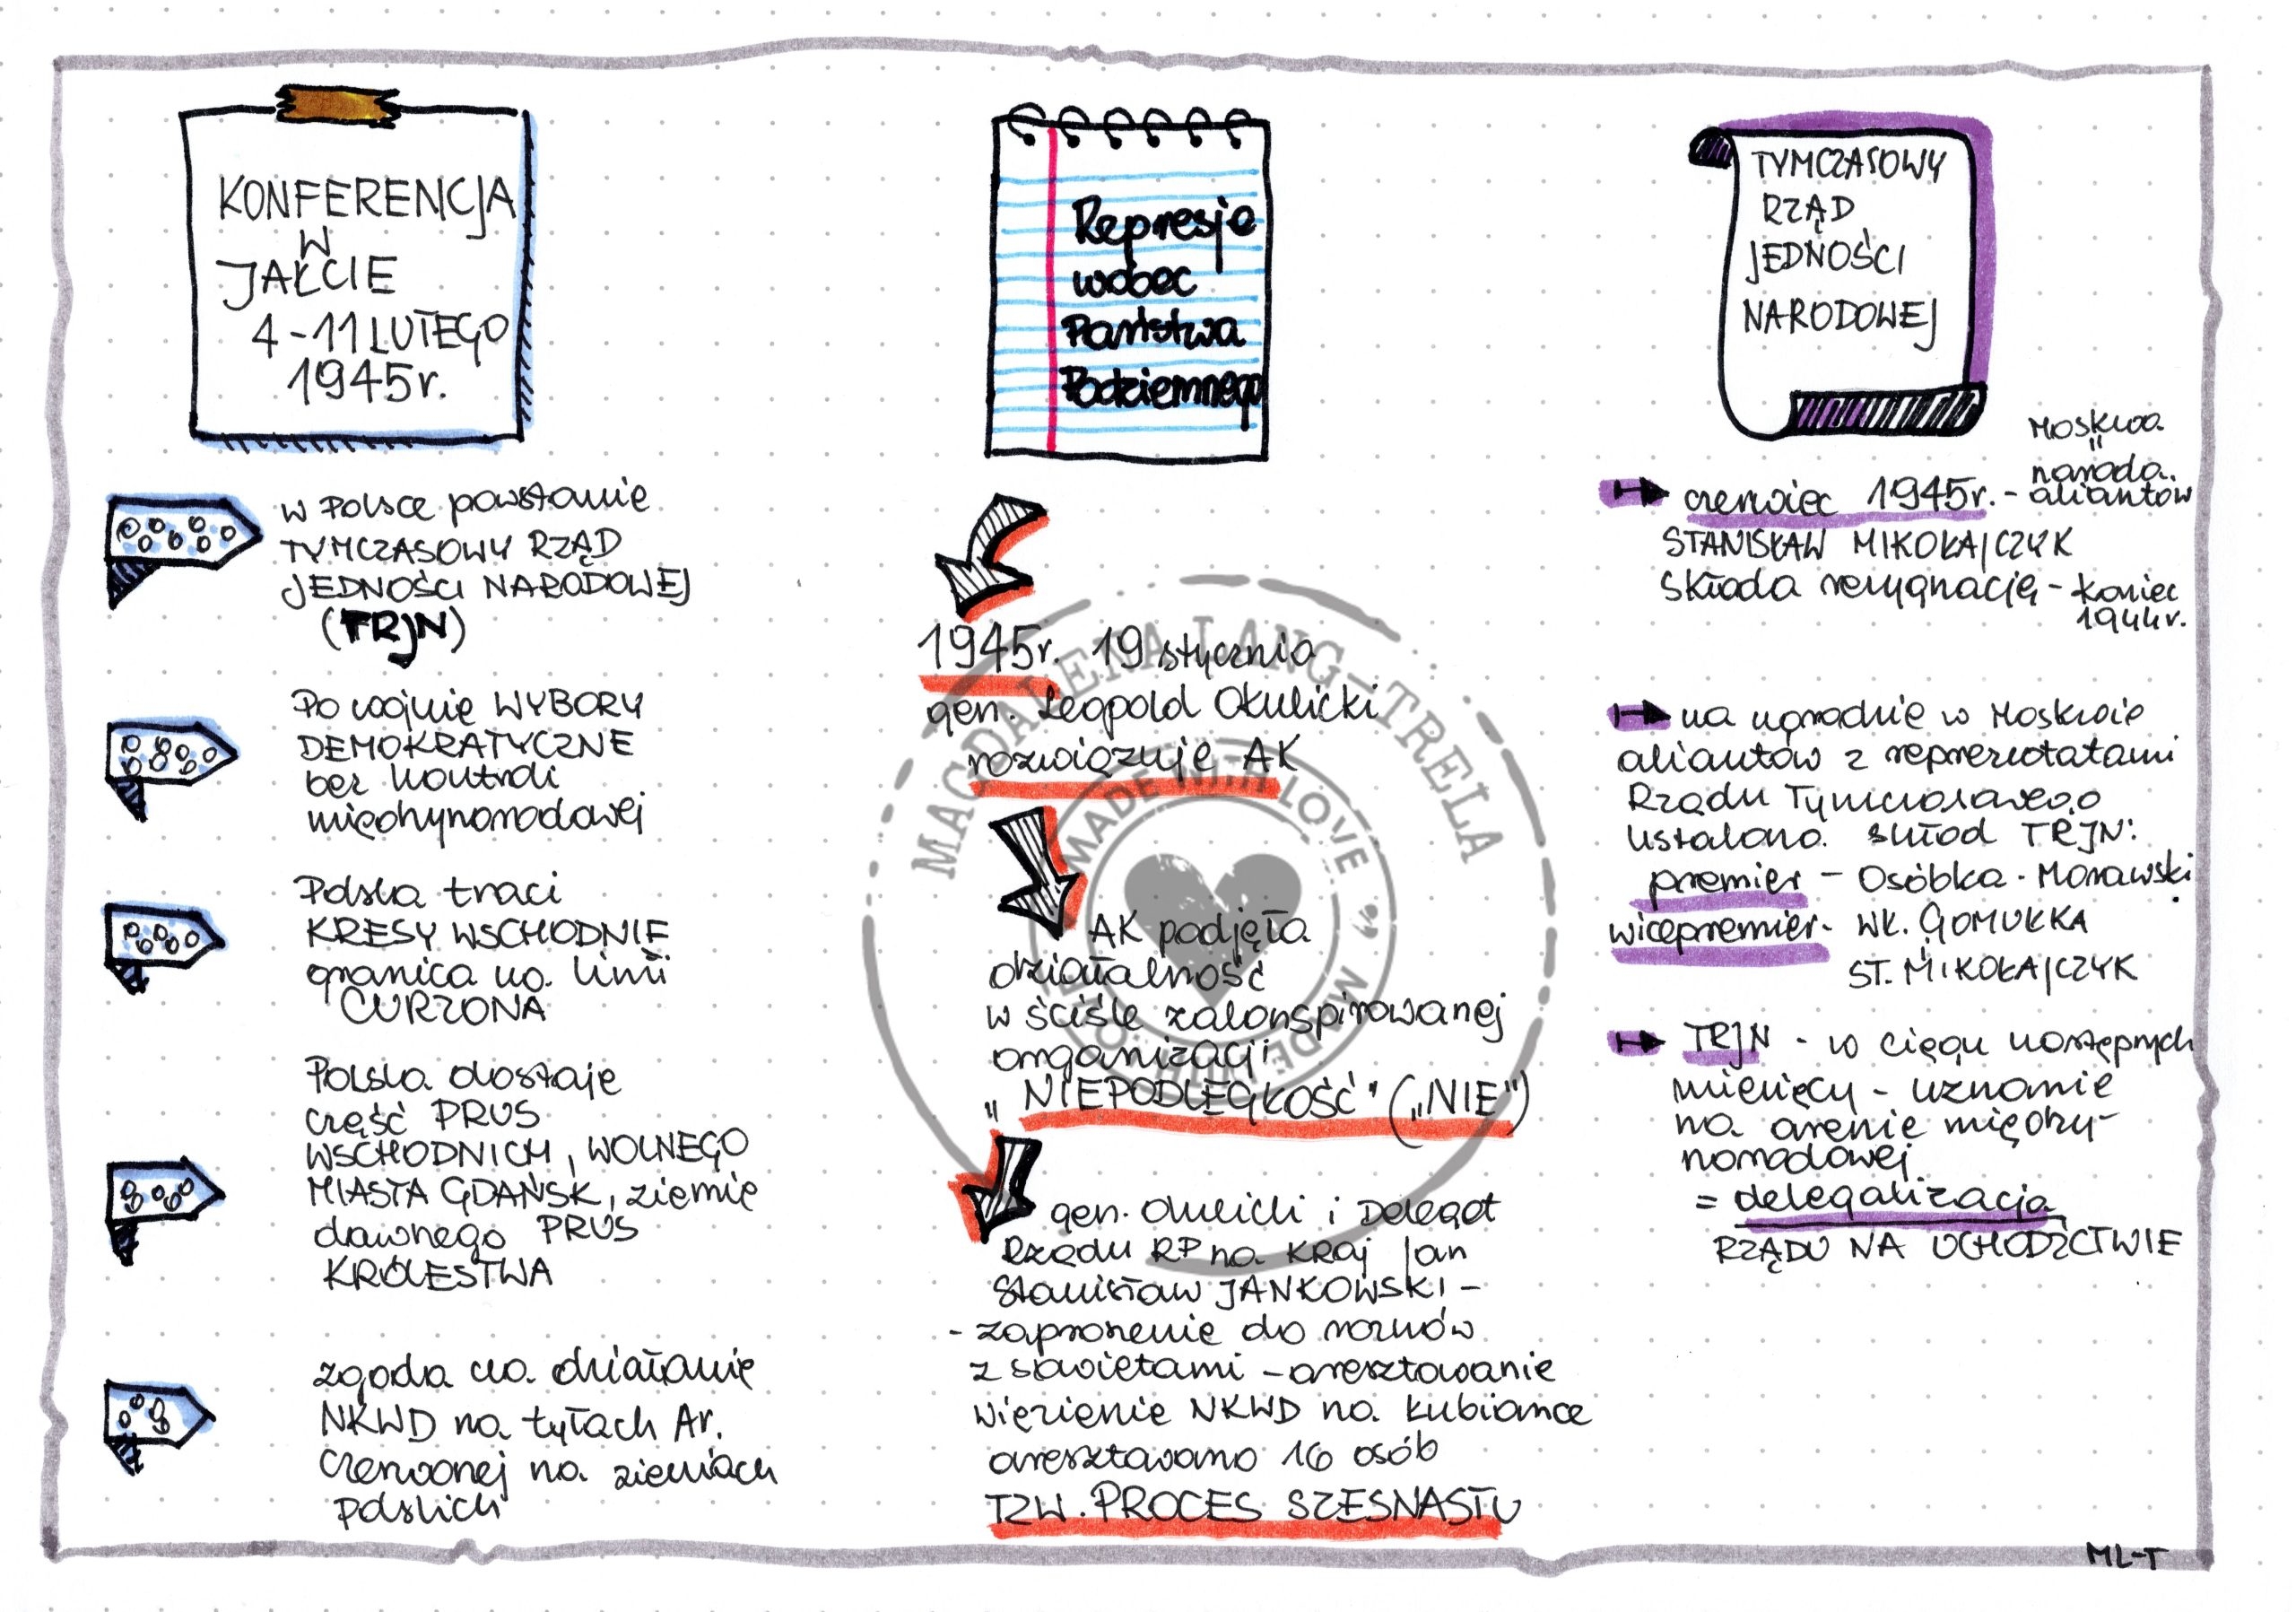 KONFERENCJA
W
JAŁCIE
4-11 LUTEGO
1945r.
w Polsce powstanie
TYMCZASOWY RZĄD
JEDNOŚCI NARODOWEJ
(TRJN)
Po wojnie WYBORY
DEMOKRATYCZNE
bez kontroli
międzynarodowej
Polska traci
KRESY WSCHODNIE
granica na linii
CURZONA
Polska dostaje
część PRUS
WSCHODNICH, WOLNEGO
MIASTA GDAŃSK, ziemie
dawnego PRUS
KRÓLESTWA
zgoda na działanie
NKWD na tyłach Ar.
Czerwonej na ziemiach
Polskich
Represje
wobec
Państwa
Podziemnego
1945r. 19 stycznia
gen. Leopold Okulicki
rozwiązuje AK
AK podjęła
działalność
w ściśle zakonspirowanej
organizacji
"NIEPODLEGŁOŚĆ" („NIE")
gen. Okulicki i Delegat
Rządu RP na Kraj Jan
Stanisław JANKOWSKI -
- zaproszenie do rozmów
z sowietami - aresztowanie
więzienie NKWD na Łubiance
aresztowano 16 osób
TZW. PROCES SZESNASTU
TYMCZASOWY
RZĄD
JEDNOŚCI
NARODOWEJ
Moskwa
"
narada
czerwiec 1945r. - aliantów
STANISŁAW MIKOŁAJCZYK
składa rezygnację - koniec
1944r.
na naradzie w Moskwie
aliantów z
Rządu Tymczasowego
ustalono skład TRJN:
premier - Osóbka-Morawski
wicepremier - WŁ. GOMUŁKA
ST. MIKOŁAJCZYK
TRJN - w ciągu następnych
miesięcy - uznanie
na arenie między-
narodowej
= delegalizacja
RZĄDU NA UCHODŹCTWIE
MAGDALENA LANG-TRELA
MADE WITH LOVE
ML-T